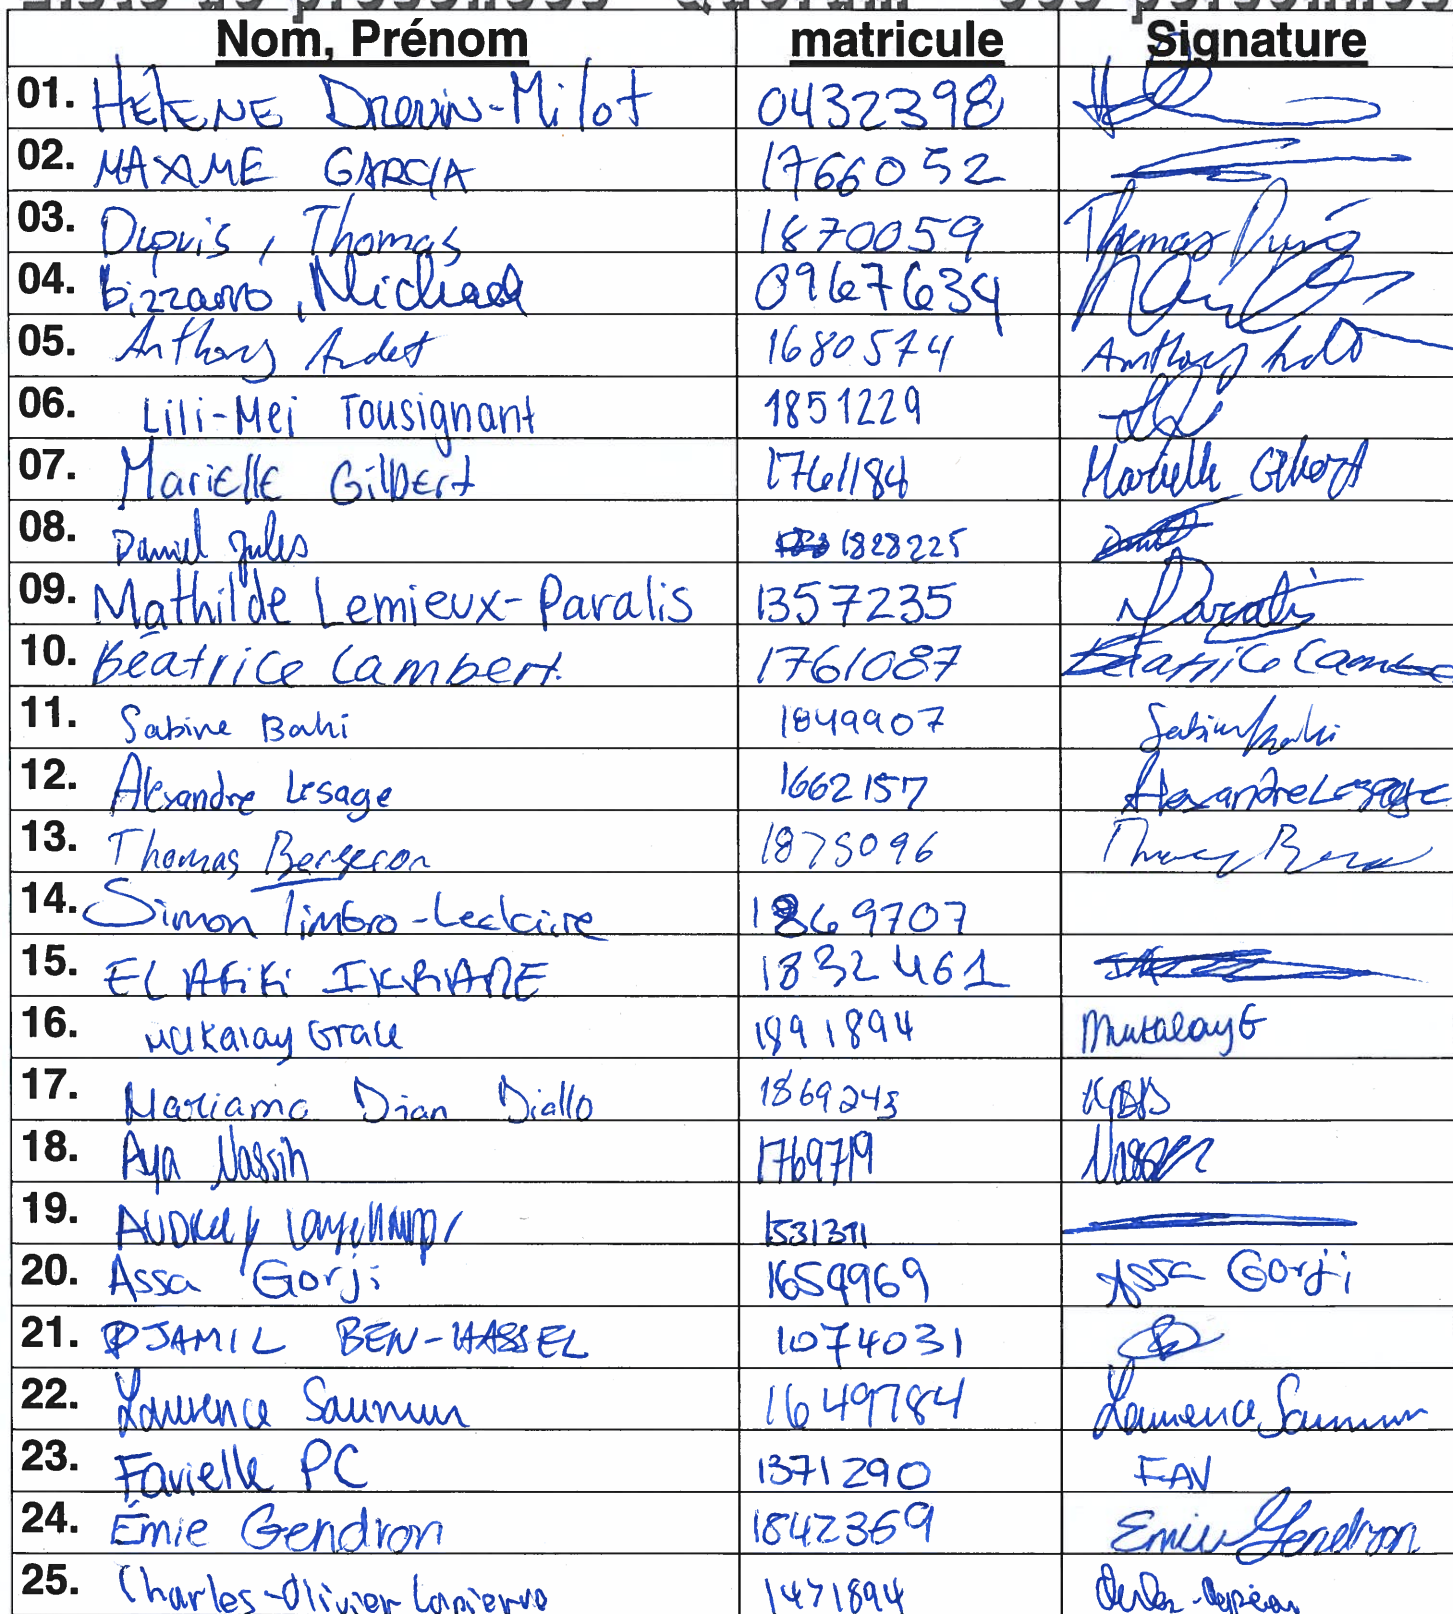 Liste de présences - Quorum - personnes
Nom, Prénom matricule Signature
01. HÉLÈNE Drouin-Milot 0432398
02. MAXIME GARCIA 1766052
03. Dupuis, Thomas 1870059 Thomas Dupuis
04. Bizzarro, Michael 0967634
05. Anthony Audet 1680574 Anthony Audet
06. Lili-Mei Tousignant 1851229
07. Marielle Gilbert 1761184 Marielle Gilbert
08. Daniel Jules 1828225
09. Mathilde Lemieux-Paralis 1357235 Paralis
10. Béatrice Lambert 1761087 Béatrice Lambert
11. Sabine Bahi 1849907 Sabine Bahi
12. Alexandre Lesage 1662157 Alexandre Lesage
13. Thomas Bergeron 1875096
14. Simon Timbro-Leclaire 1869707
15. EL AFiKi IKRAME 1832461
16. Mukalay Grace 1891894 Mukalay G
17. Mariama Dian Diallo 1869243
18. Aya Nassih 1769719
19. AUDREY 1531311
20. Assa Gorji 1659969 Assa Gorji
21. DJAMIL BEN-WASSEL 1074031
22. Laurence Saumur 1649784 Laurence Saumur
23. Favielle PC 1371290 FAV
24. Émie Gendron 1842369 Émie Gendron
25. Charles-Olivier Lapierre 1471894